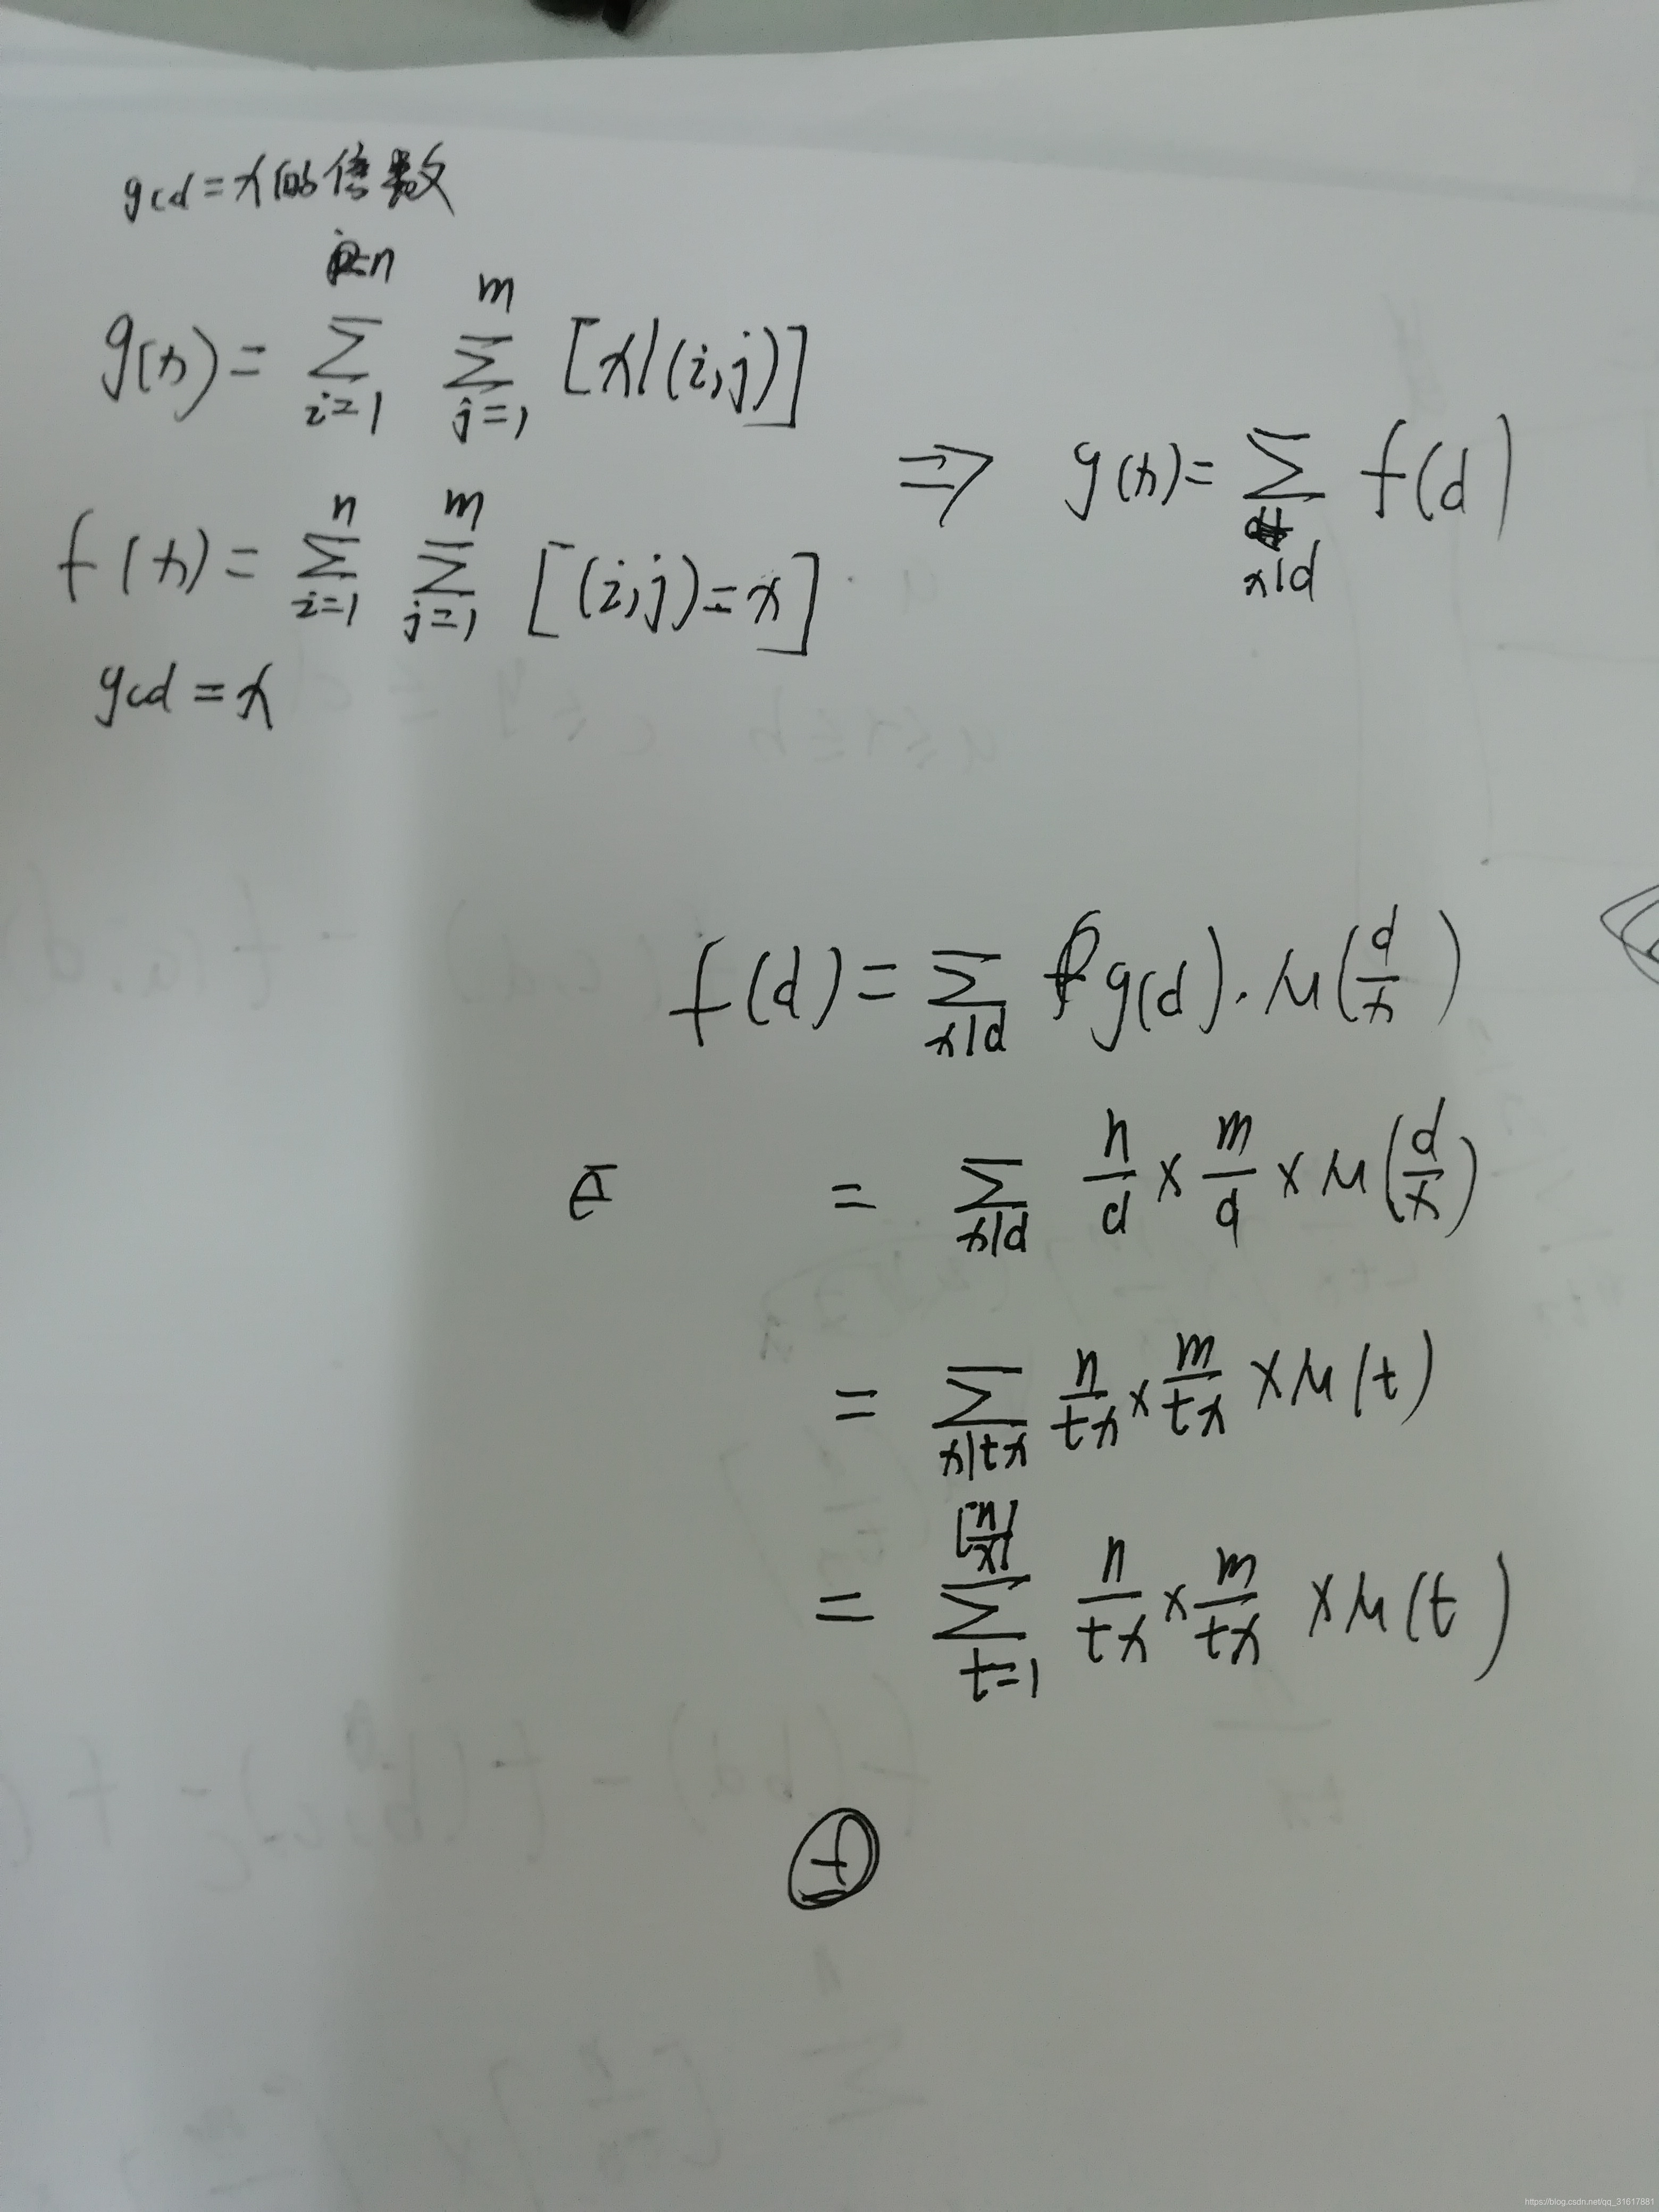 gcd=x的倍数
g(x)= \sum_{i=1}^{n} \sum_{j=1}^{m} [x|(i,j)]
⇒ g(x)= \sum_{x|d} f(d)
f(x)= \sum_{i=1}^{n} \sum_{j=1}^{m} [(i,j)=x]
gcd=x
f(d)= \sum_{x|d} g(d)·μ(\frac{d}{x})
= \sum_{x|d} \frac{n}{d}×\frac{m}{d}×μ(\frac{d}{x})
= \sum_{x|tx} \frac{n}{tx}×\frac{m}{tx}×μ(t)
= \sum_{t=1}^{[\frac{n}{x}]} \frac{n}{tx}×\frac{m}{tx}×μ(t)
https://blog.csdn.net/qq_31617881